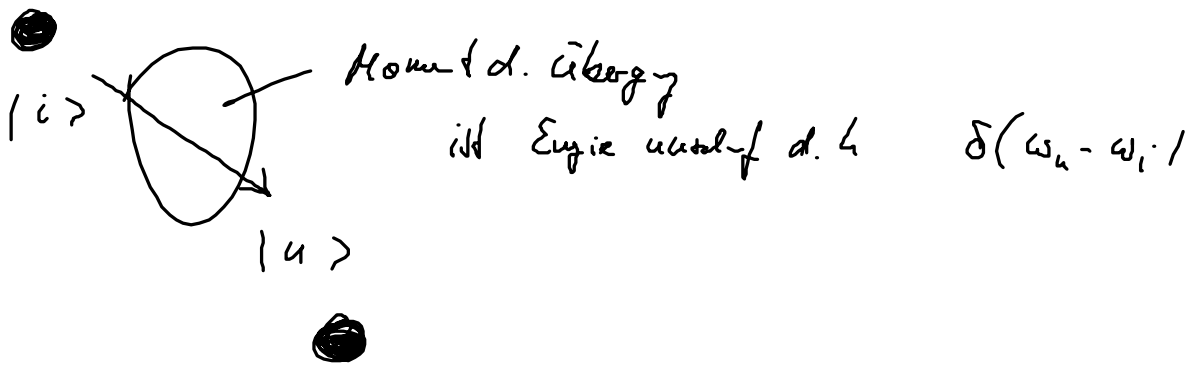 Moment d. Überg
|i>
ist Energie unscharf d. h δ(ωn - ωi)
|n>